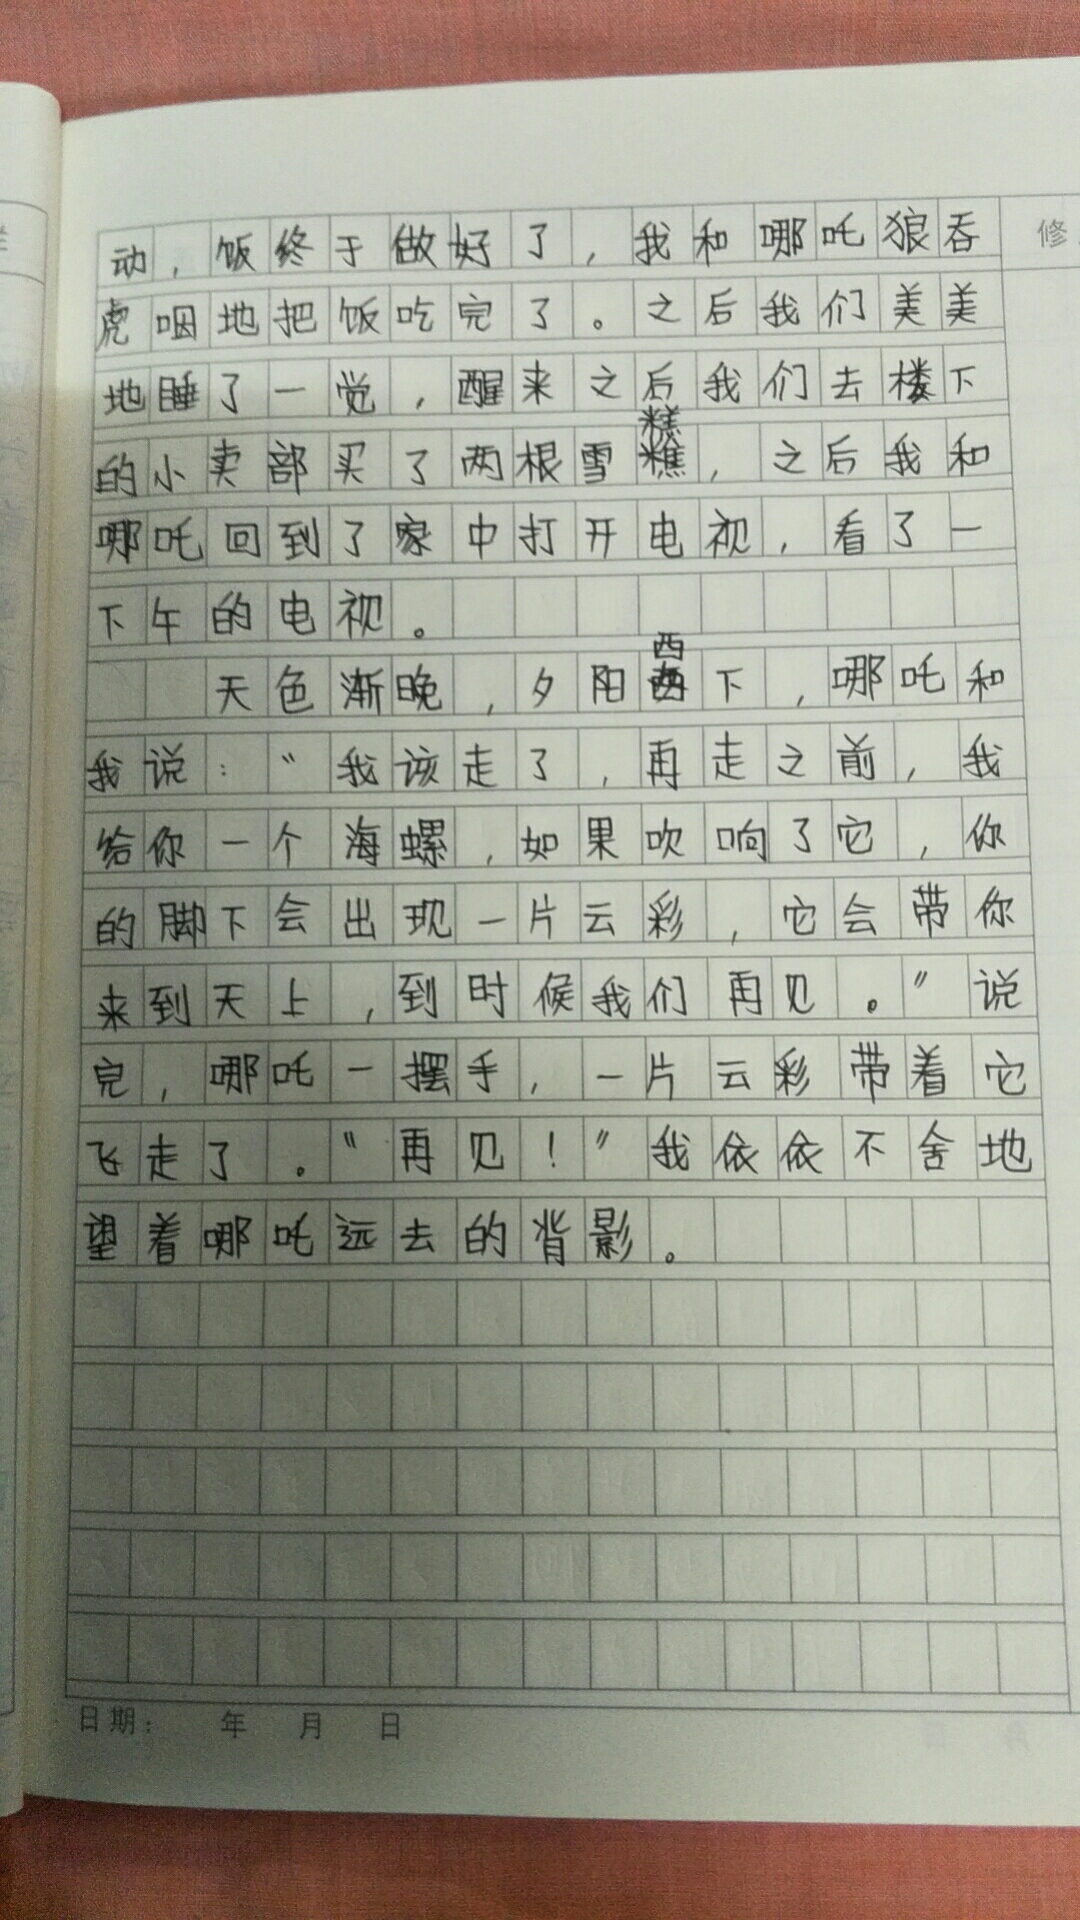 动，饭终于做好了，我和哪吒狼吞
虎咽地把饭吃完了。之后我们美美
地睡了一觉，醒来之后我们去楼下
的小卖部买了两根雪糕，之后我和
哪吒回到了家中打开电视，看了一
下午的电视。
天色渐晚，夕阳西下，哪吒和
我说："我该走了，再走之前，我
给你一个海螺，如果吹响了它，你
的脚下会出现一片云彩，它会带你
来到天上，到时候我们再见。"说
完，哪吒一摆手，一片云彩带着它
飞走了。"再见！"我依依不舍地
望着哪吒远去的背影。
日期： 年 月 日
修